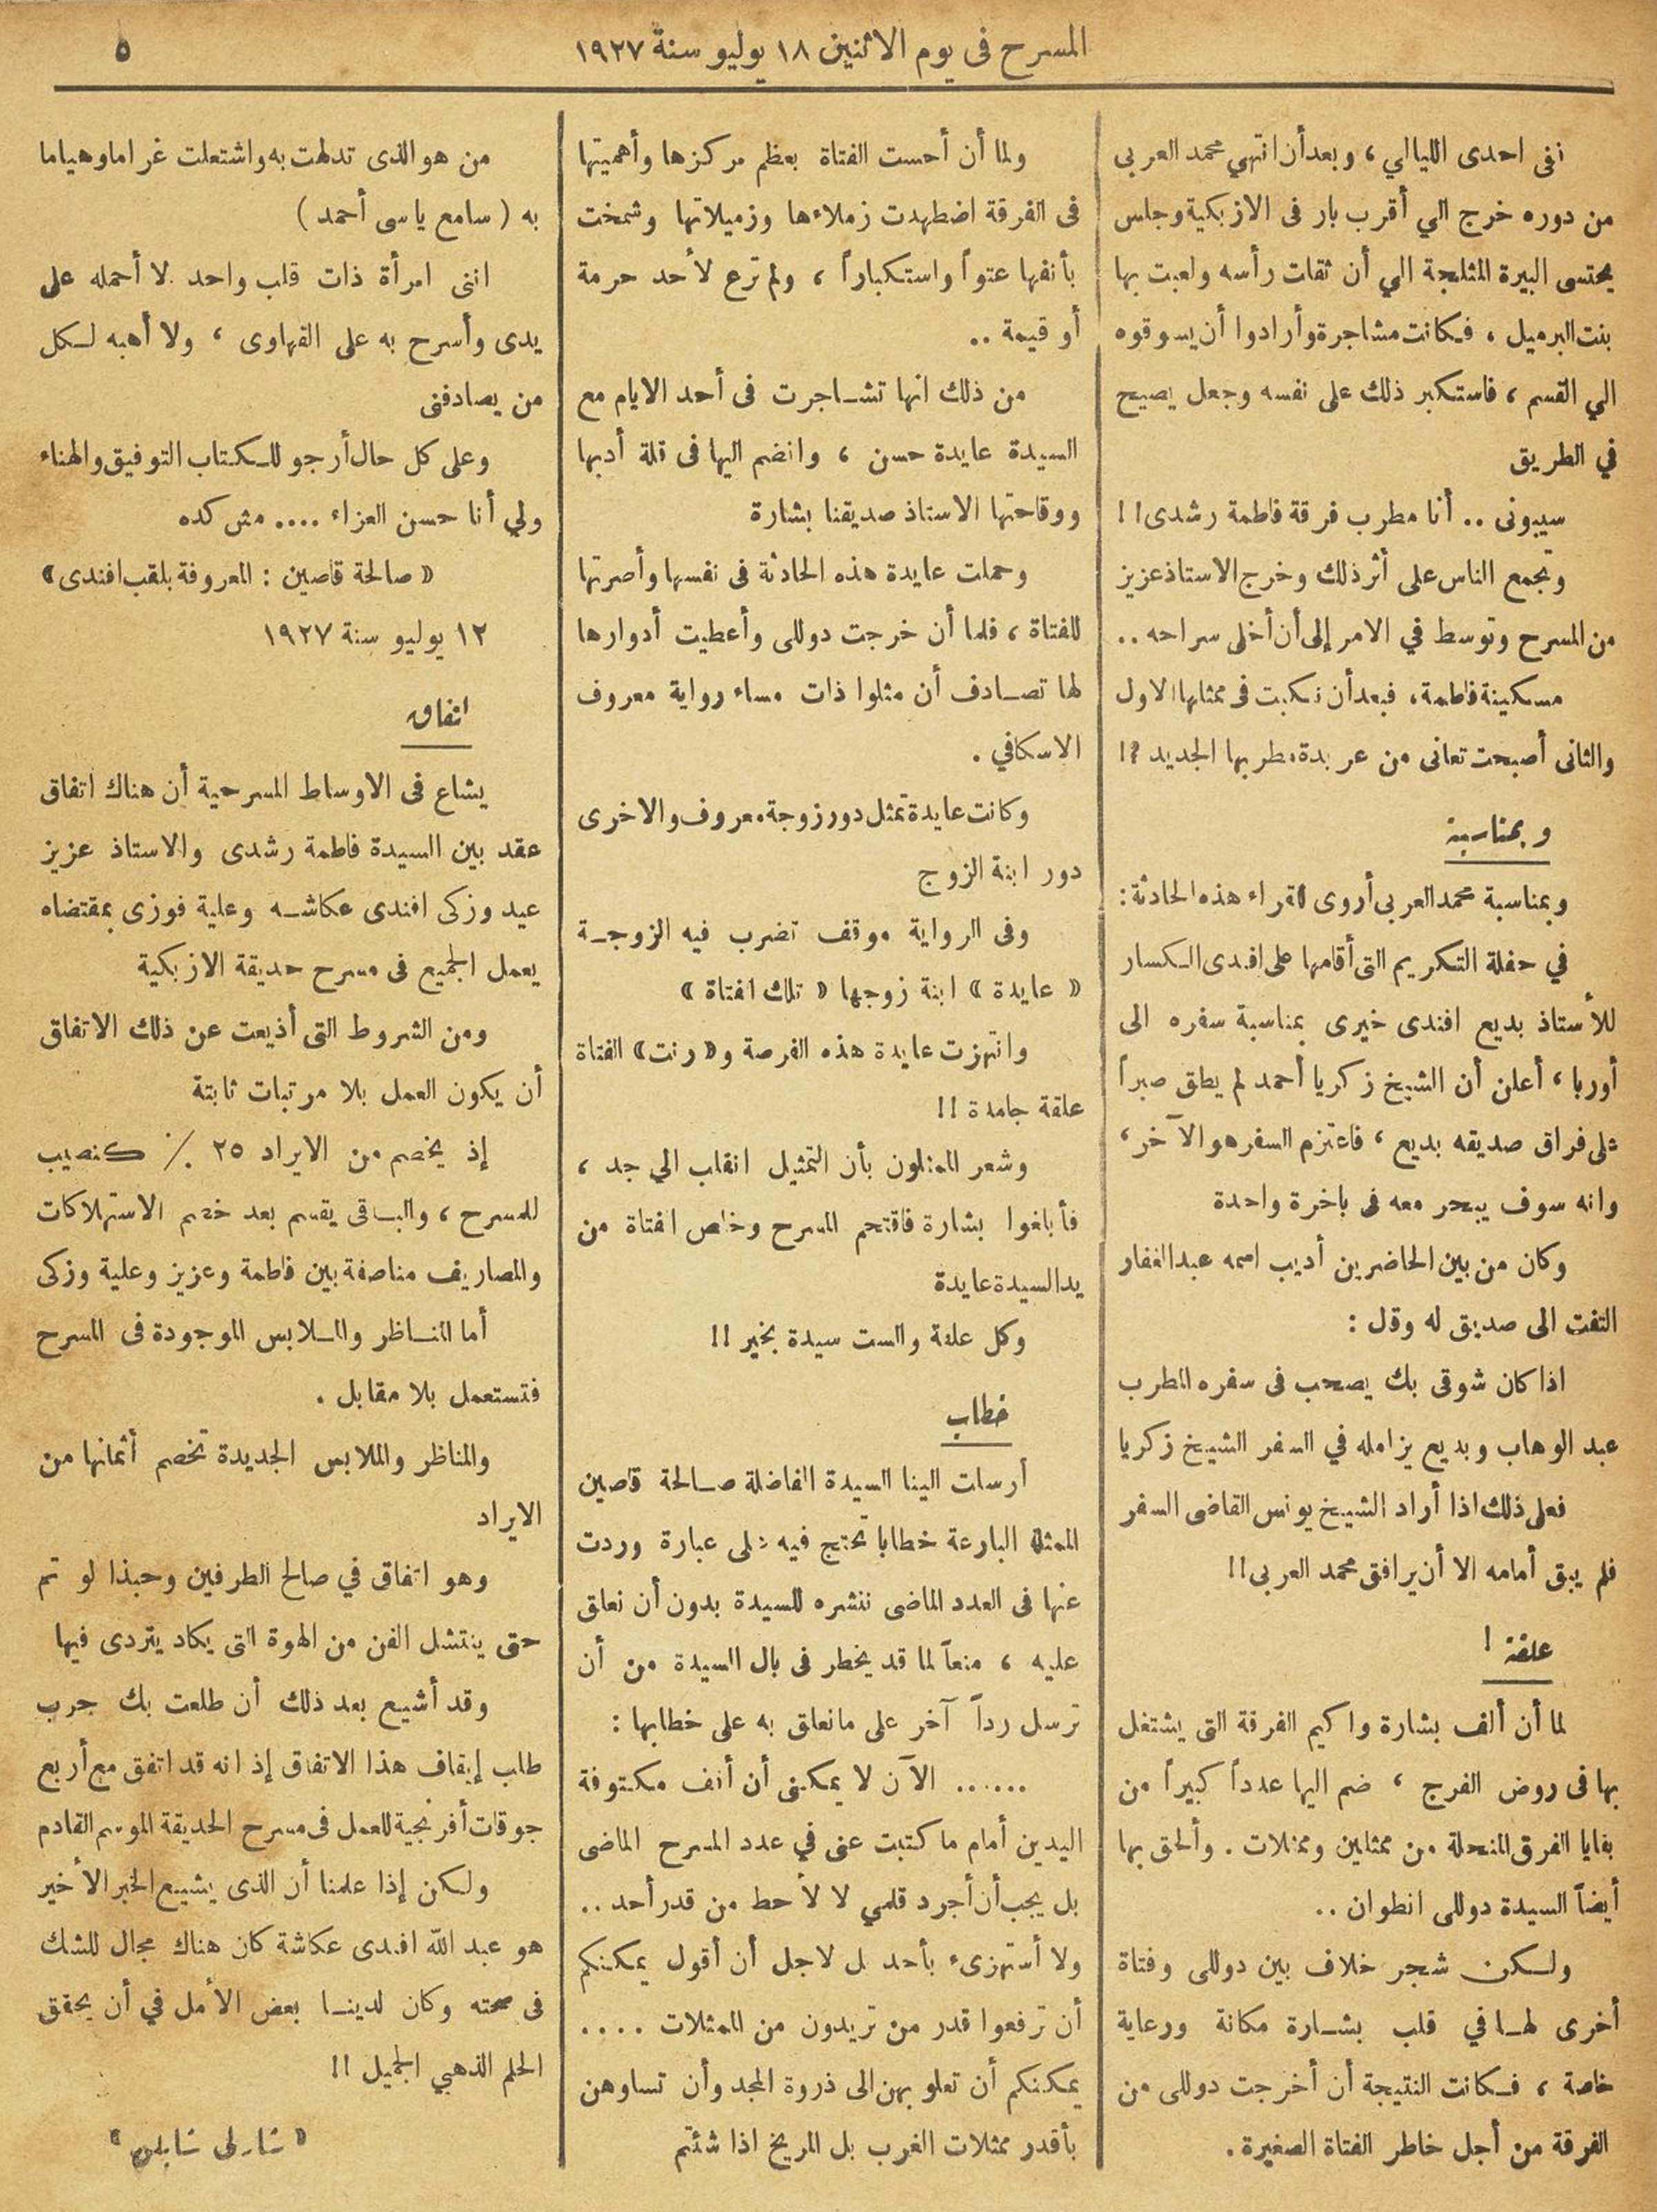 المسرح فى يوم الاثنين ١٨ يوليو سنة ١٩٢٧
٥
ففى احدى الليالي ، وبعد أن انتهي محمد العربى
من دوره خرج الي أقرب بار فى الازبكية وجلس
يحتسى البيرة المثلجة الي أن ثقلت رأسه ولعبت بها
بنت البرميل ، فكانت مشاجرة وأرادوا أن يسوقوه
الي القسم ، فاستكبر ذلك على نفسه وجعل يصيح
في الطريق
سيبونى .. أنا مطرب فرقة فاطمة رشدى !!
وتجمع الناس على أثر ذلك وخرج الاستاذ عزيز
من المسرح وتوسط في الامر إلى أن أخلى سراحه ..
مسكينة فاطمة ، فبعد أن نكبت فى ممثلها الاول
والثانى أصبحت تعانى من عربدة مطربها الجديد ؟!
وبمناسبة
وبمناسبة محمد العربى أروى للقراء هذه الحادثة :
في حفلة التكريم التى أقامها على افندى الكسار
للأستاذ بديع افندى خيرى بمناسبة سفره الى
أوربا ، أعلن أن الشيخ زكريا أحمد لم يطق صبراً
على فراق صديقه بديع ، فاعتزم السفر هو الآخر ،
وانه سوف يبحر معه فى باخرة واحدة
وكان من بين الحاضرين أديب اسمه عبد الغفار
التفت الى صديق له وقال :
اذا كان شوقى بك يصحب فى سفره المطرب
عبد الوهاب وبديع يزامله في السفر الشيخ زكريا
فعلى ذلك اذا أراد الشيخ يونس القاضى السفر
فلم يبق أمامه الا أن يرافق محمد العربى !!
علقة !
لما أن ألف بشارة واكيم الفرقة التى يشتغل
بها فى روض الفرج ، ضم اليها عدداً كبيراً من
بقايا الفرق المنحلة من ممثلين وممثلات . وألحق بها
أيضاً السيدة دوللى انطوان ..
ولكن شجر خلاف بين دوللى وفتاة
أخرى لها في قلب بشارة مكانة ورعاية
خاصة ، فكانت النتيجة أن أخرجت دوللى من
الفرقة من أجل خاطر الفتاة الصغيرة .
ولما أن أحست الفتاة بعظم مركزها وأهميتها
فى الفرقة اضطهدت زملاءها وزميلاتها وشمخت
بأنفها عتواً واستكباراً ، ولم ترع لأحد حرمة
أو قيمة ..
من ذلك انها تشاجرت فى أحد الايام مع
السيدة عايدة حسن ، وانضم اليها فى قلة أدبها
ووقاحتها الاستاذ صديقنا بشارة
وحملت عايدة هذه الحادثة فى نفسها وأصرتها
للفتاة ، فلما أن خرجت دوللى وأعطيت أدوارها
لها تصادف أن مثلوا ذات مساء رواية معروف
الاسكافي .
وكانت عايدة تمثل دور زوجة معروف والاخرى
دور ابنة الزوج
وفى الرواية موقف تضرب فيه الزوجة
« عايدة » ابنة زوجها « تلك الفتاة »
وانتهزت عايدة هذه الفرصة و« رنت » الفتاة
علقة جامدة !!
وشعر الممثلون بأن التمثيل انقلب الي جد ،
فأبلغوا بشارة فاقتحم المسرح وخلص الفتاة من
يد السيدة عايدة
وكل علقة والست سيدة بخير !!
خطاب
أرسلت الينا السيدة الفاضلة صالحة قاصين
الممثلة البارعة خطابا تحتج فيه على عبارة وردت
عنها فى العدد الماضى ننشره للسيدة بدون أن نعلق
عليه ، منعاً لما قد يخطر فى بال السيدة من أن
ترسل رداً آخر على مانعلق به على خطابها :
...... الآن لا يمكنى أن أقف مكتوفة
اليدين أمام ما كتبت عنى في عدد المسرح الماضى
بل يجب أن أجرد قلمي لا لأحط من قدر أحد ..
ولا أستهزىء بأحد بل لاجل أن أقول يمكنكم
أن ترفعوا قدر من تريدون من الممثلات ....
يمكنكم أن تعلو بهن الى ذروة المجد وأن تساوهن
بأقدر ممثلات الغرب بل المريخ اذا شئتم
من هو الذى تدلهت به واشتعلت غراما وهياما
به ( سامع ياسى أحمد )
اننى امرأة ذات قلب واحد لا أحمله على
يدى وأسرح به على القهاوى ، ولا أهبه لكل
من يصادفنى
وعلى كل حال أرجو للكتاب التوفيق والهناء
ولي أنا حسن العزاء .... مش كده
« صالحة قاصين : المعروفة بلقب افندى »
١٢ يوليو سنة ١٩٢٧
اتفاق
يشاع فى الاوساط المسرحية أن هناك اتفاق
عقد بين السيدة فاطمة رشدى والاستاذ عزيز
عيد وزكى افندى عكاشه وعلية فوزى بمقتضاه
يعمل الجميع فى مسرح حديقة الازبكية
ومن الشروط التى أذيعت عن ذلك الاتفاق
أن يكون العمل بلا مرتبات ثابتة
إذ يخصم من الايراد ٢٥ ٪ كنصيب
للمسرح ، والباقى يقسم بعد خصم الاستهلاكات
والمصاريف مناصفة بين فاطمة وعزيز وعلية وزكى
أما المناظر والملابس الموجودة فى المسرح
فتستعمل بلا مقابل .
والمناظر والملابس الجديدة تخصم أثمانها من
الايراد
وهو اتفاق في صالح الطرفين وحبذا لو تم
حتى ينتشل الفن من الهوة التى يكاد يتردى فيها
وقد أشيع بعد ذلك أن طلعت بك حرب
طلب إيقاف هذا الاتفاق إذ انه قد اتفق مع أربع
جوقات أفرنجية للعمل فى مسرح الحديقة الموسم القادم
ولكن إذا علمنا أن الذى يشيع الخبر الأخير
هو عبد الله افندى عكاشة كان هناك مجال للشك
فى صحته وكان لدينا بعض الأمل في أن يحقق
الحلم الذهبي الجميل !!
« شارلى شابلن »